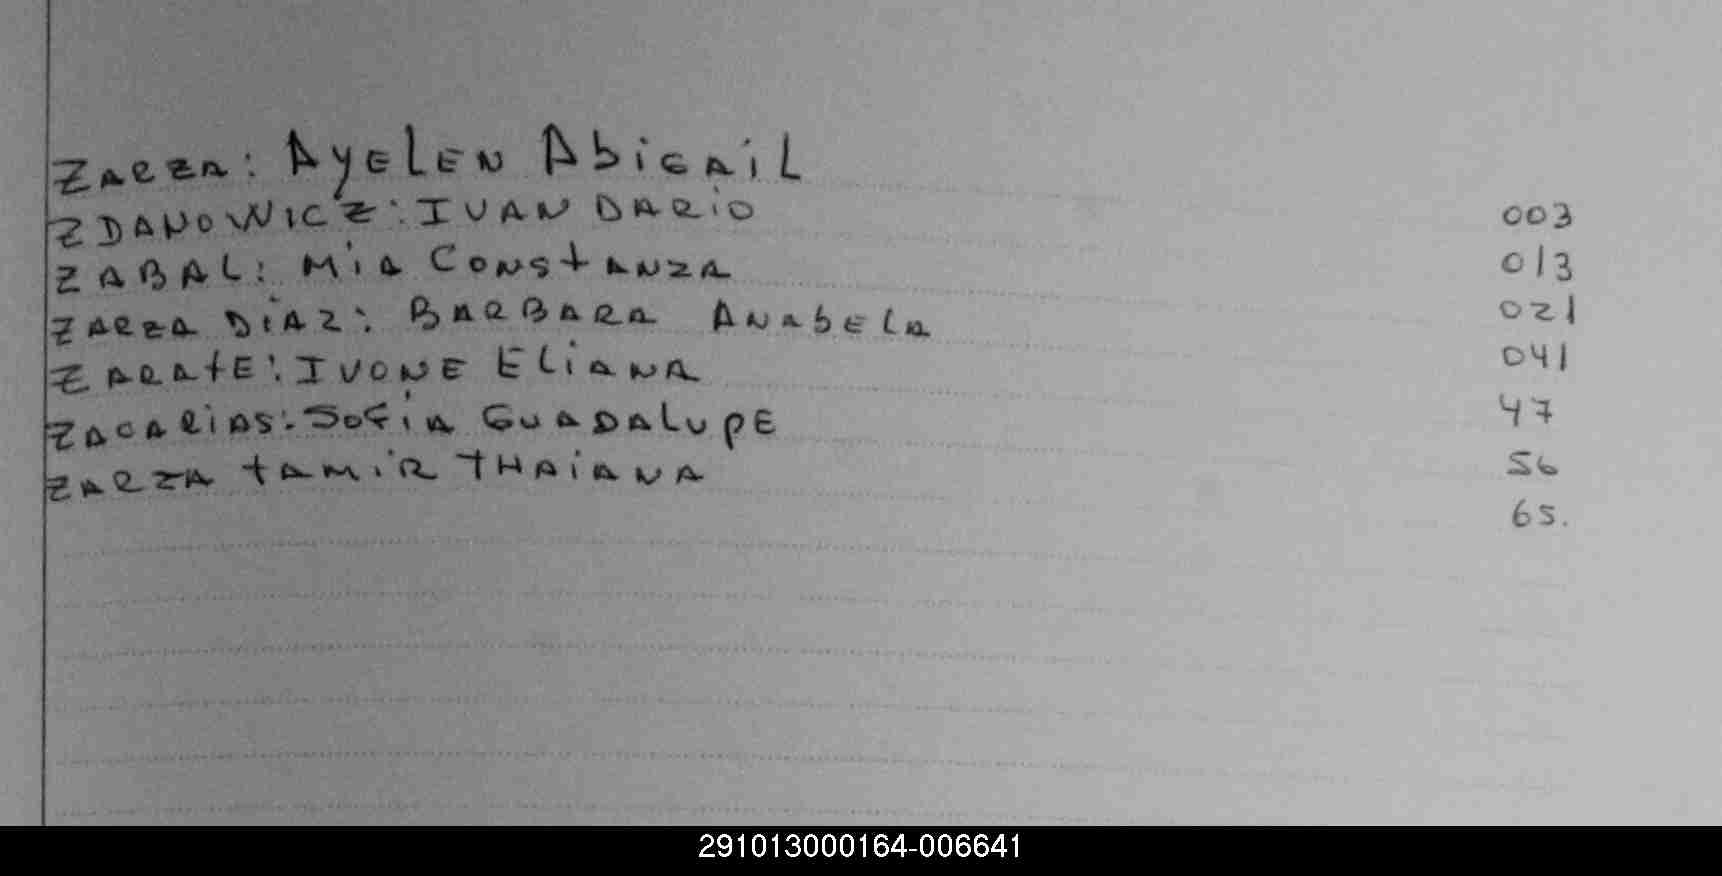 ZARZA: AYELEN AbiGAiL 003
ZDANOWICZ: IVAN DARiO 013
ZABAL: MiA CONStANZA 021
ZARZA DiAZ: BARBARA ANAbELA 041
ZARAtE: IVONE ELiANA 47
ZACARiAS: SOFiA GUADALUPE 56
ZARZA tAMiR THAiANA 65.
291013000164-006641